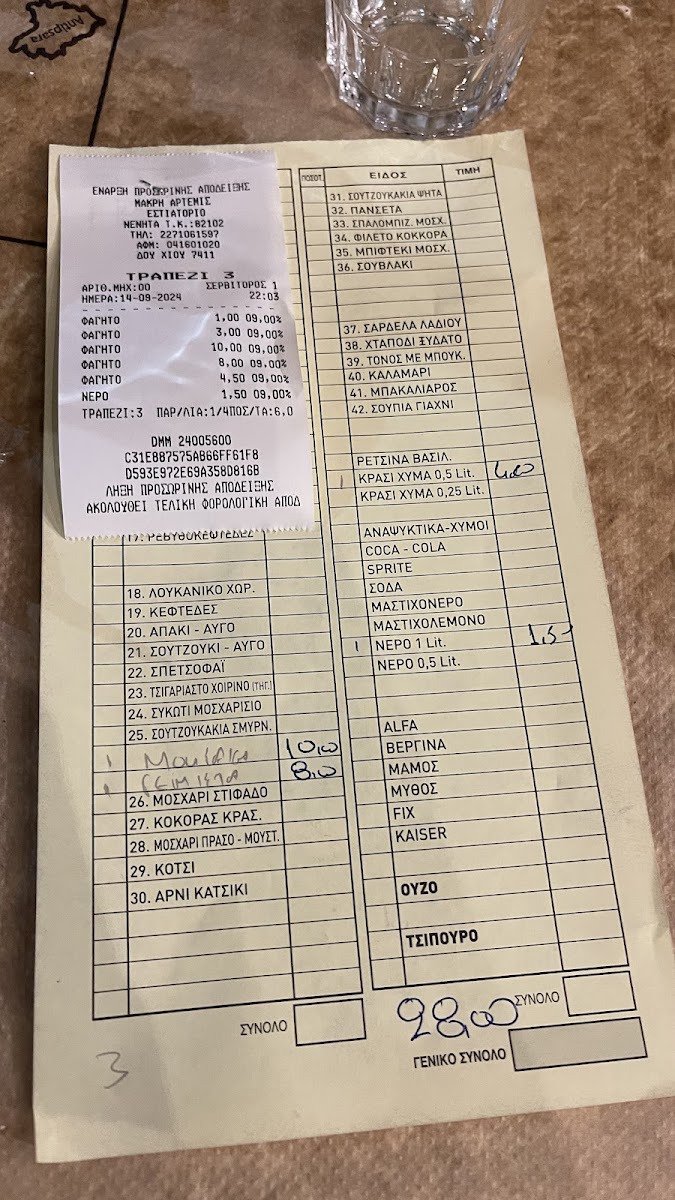 Antipsara
ΕΝΑΡΞΗ ΠΡΟΣΩΡΙΝΗΣ ΑΠΟΔΕΙΞΗΣ
ΜΑΚΡΗ ΑΡΤΕΜΙΣ
ΕΣΤΙΑΤΟΡΙΟ
ΝΕΝΗΤΑ Τ.Κ.:82102
ΤΗΛ: 2271061597
ΑΦΜ: 041601020
ΔΟΥ ΧΙΟΥ 7411
ΤΡΑΠΕΖΙ 3
ΑΡΙΘ.ΜΗΧ:00 ΣΕΡΒΙΤΟΡΟΣ 1
ΗΜΕΡΑ:14-09-2024 22:03
ΦΑΓΗΤΟ 1,00 09,00%
ΦΑΓΗΤΟ 3,00 09,00%
ΦΑΓΗΤΟ 10,00 09,00%
ΦΑΓΗΤΟ 8,00 09,00%
ΦΑΓΗΤΟ 4,50 09,00%
ΝΕΡΟ 1,50 09,00%
ΤΡΑΠΕΖΙ:3 ΠΑΡ/ΛΙΑ:1/4ΠΟΣ/ΤΑ:6,0
DMM 24005600
C31E887575AB66FF61F8
D593E972E69A358D816B
ΛΗΞΗ ΠΡΟΣΩΡΙΝΗΣ ΑΠΟΔΕΙΞΗΣ
ΑΚΟΛΟΥΘΕΙ ΤΕΛΙΚΗ ΦΟΡΟΛΟΓΙΚΗ ΑΠΟΔ
17. ΡΕΒΥΘΟΚΕΦΤΕΔΕΣ
18. ΛΟΥΚΑΝΙΚΟ ΧΩΡ.
19. ΚΕΦΤΕΔΕΣ
20. ΑΠΑΚΙ - ΑΥΓΟ
21. ΣΟΥΤΖΟΥΚΙ - ΑΥΓΟ
22. ΣΠΕΤΣΟΦΑΪ
23. ΤΣΙΓΑΡΙΑΣΤΟ ΧΟΙΡΙΝΟ (ΤΗΓ.)
24. ΣΥΚΩΤΙ ΜΟΣΧΑΡΙΣΙΟ
25. ΣΟΥΤΖΟΥΚΑΚΙΑ ΣΜΥΡΝ.
1 10,00
1 8,00
26. ΜΟΣΧΑΡΙ ΣΤΙΦΑΔΟ
27. ΚΟΚΟΡΑΣ ΚΡΑΣ.
28. ΜΟΣΧΑΡΙ ΠΡΑΣΟ - ΜΟΥΣΤ.
29. ΚΟΤΣΙ
30. ΑΡΝΙ ΚΑΤΣΙΚΙ
ΣΥΝΟΛΟ
3
ΠΟΣΟΤ. ΕΙΔΟΣ ΤΙΜΗ
31. ΣΟΥΤΖΟΥΚΑΚΙΑ ΨΗΤΑ
32. ΠΑΝΣΕΤΑ
33. ΣΠΑΛΟΜΠΙΖ. ΜΟΣΧ.
34. ΦΙΛΕΤΟ ΚΟΚΚΟΡΑ
35. ΜΠΙΦΤΕΚΙ ΜΟΣΧ.
36. ΣΟΥΒΛΑΚΙ
37. ΣΑΡΔΕΛΑ ΛΑΔΙΟΥ
38. ΧΤΑΠΟΔΙ ΞΥΔΑΤΟ
39. ΤΟΝΟΣ ΜΕ ΜΠΟΥΚ.
40. ΚΑΛΑΜΑΡΙ
41. ΜΠΑΚΑΛΙΑΡΟΣ
42. ΣΟΥΠΙΑ ΓΙΑΧΝΙ
ΡΕΤΣΙΝΑ ΒΑΣΙΛ.
1 ΚΡΑΣΙ ΧΥΜΑ 0,5 Lit.
ΚΡΑΣΙ ΧΥΜΑ 0,25 Lit.
ΑΝΑΨΥΚΤΙΚΑ-ΧΥΜΟΙ
COCA - COLA
SPRITE
ΣΟΔΑ
ΜΑΣΤΙΧΟΝΕΡΟ
ΜΑΣΤΙΧΟΛΕΜΟΝΟ
1 ΝΕΡΟ 1 Lit. 1,5
ΝΕΡΟ 0,5 Lit.
ALFA
ΒΕΡΓΙΝΑ
ΜΑΜΟΣ
ΜΥΘΟΣ
FIX
KAISER
ΟΥΖΟ
ΤΣΙΠΟΥΡΟ
28,00 ΣΥΝΟΛΟ
ΓΕΝΙΚΟ ΣΥΝΟΛΟ